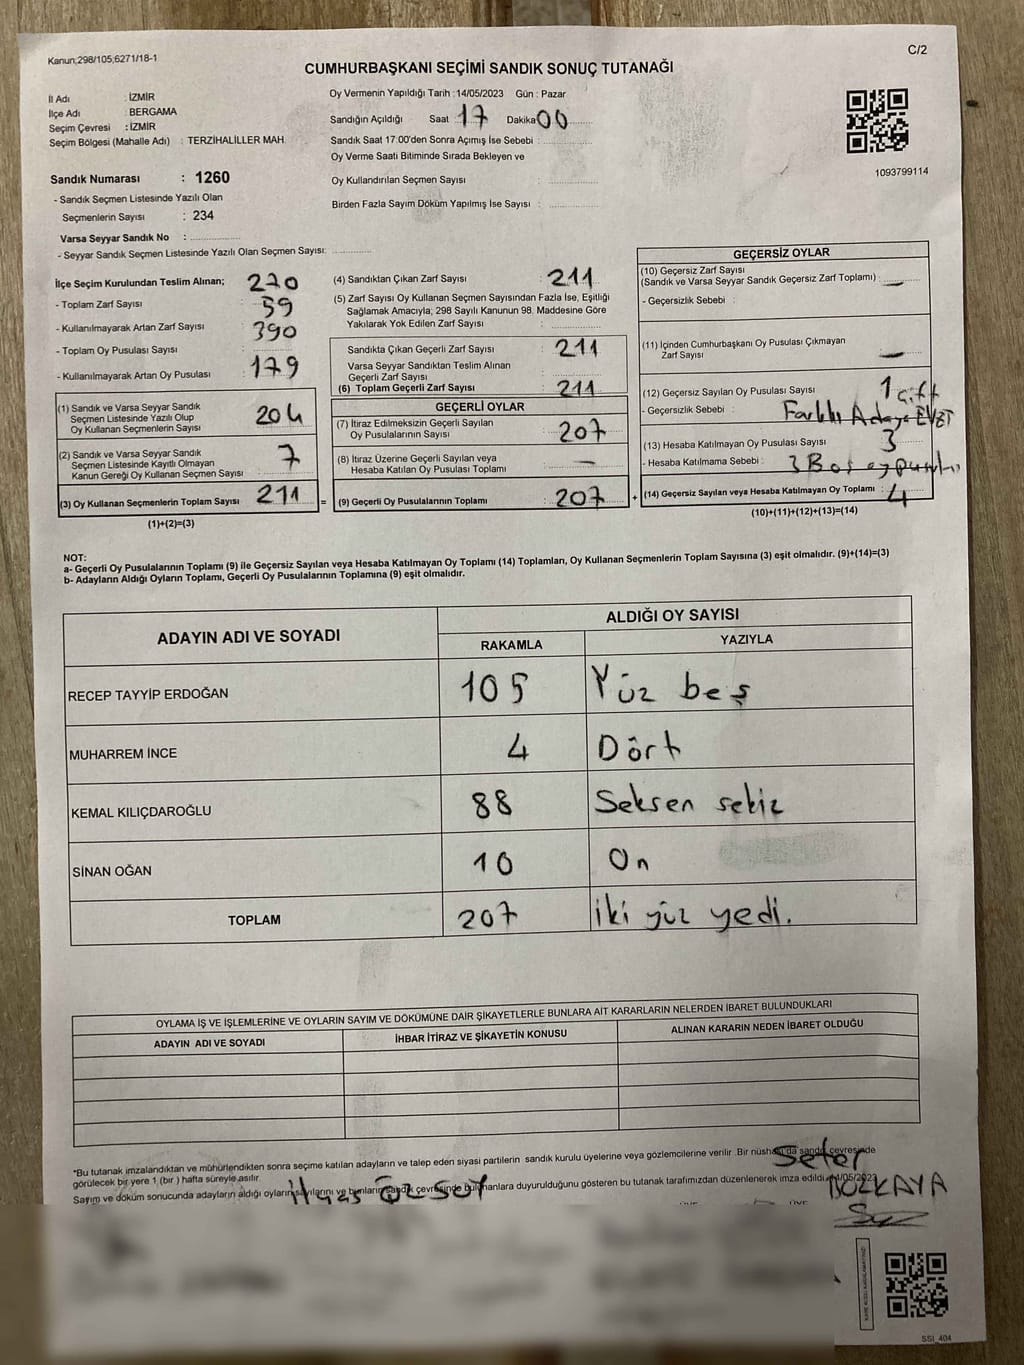 Kanun;298/105;6271/18-1
C/2
CUMHURBAŞKANI SEÇİMİ SANDIK SONUÇ TUTANAĞI
İl Adı : İZMİR
İlçe Adı : BERGAMA
Seçim Çevresi : İZMİR
Seçim Bölgesi (Mahalle Adı) : TERZİHALİLLER MAH.
Sandık Numarası : 1260
- Sandık Seçmen Listesinde Yazılı Olan
Seçmenlerin Sayısı : 234
Varsa Seyyar Sandık No :
- Seyyar Sandık Seçmen Listesinde Yazılı Olan Seçmen Sayısı:
Oy Vermenin Yapıldığı Tarih :14/05/2023 Gün : Pazar
Sandığın Açıldığı Saat 17 Dakika 00
Sandık Saat 17:00'den Sonra Açımış İse Sebebi :
Oy Verme Saati Bitiminde Sırada Bekleyen ve
Oy Kullandırılan Seçmen Sayısı :
Birden Fazla Sayım Döküm Yapılmış İse Sayısı :
1093799114
İlçe Seçim Kurulundan Teslim Alınan; 220
- Toplam Zarf Sayısı : 59
- Kullanılmayarak Artan Zarf Sayısı 390
- Toplam Oy Pusulası Sayısı :
- Kullanılmayarak Artan Oy Pusulası : 179
(1) Sandık ve Varsa Seyyar Sandık
Seçmen Listesinde Yazılı Olup
Oy Kullanan Seçmenlerin Sayısı 204
(2) Sandık ve Varsa Seyyar Sandık
Seçmen Listesinde Kayıtlı Olmayan
Kanun Gereği Oy Kullanan Seçmen Sayısı 7
(3) Oy Kullanan Seçmenlerin Toplam Sayısı 211 =
(1)+(2)=(3)
(4) Sandıktan Çıkan Zarf Sayısı : 211
(5) Zarf Sayısı Oy Kullanan Seçmen Sayısından Fazla İse, Eşitliği
Sağlamak Amacıyla; 298 Sayılı Kanunun 98. Maddesine Göre
Yakılarak Yok Edilen Zarf Sayısı :
Sandıkta Çıkan Geçerli Zarf Sayısı : 211
Varsa Seyyar Sandıktan Teslim Alınan
Geçerli Zarf Sayısı
(6) Toplam Geçerli Zarf Sayısı : 211
GEÇERLİ OYLAR
(7) İtiraz Edilmeksizin Geçerli Sayılan
Oy Pusulalarının Sayısı : 207
(8) İtiraz Üzerine Geçerli Sayılan veya
Hesaba Katılan Oy Pusulası Toplamı : —
(9) Geçerli Oy Pusulalarının Toplamı : 207 +
GEÇERSİZ OYLAR
(10) Geçersiz Zarf Sayısı
(Sandık ve Varsa Seyyar Sandık Geçersiz Zarf Toplamı) : —
- Geçersizlik Sebebi :
(11) İçinden Cumhurbaşkanı Oy Pusulası Çıkmayan
Zarf Sayısı : —
(12) Geçersiz Sayılan Oy Pusulası Sayısı : 1 çift
- Geçersizlik Sebebi : Farklı Adaya EVET
(13) Hesaba Katılmayan Oy Pusulası Sayısı : 3
- Hesaba Katılmama Sebebi : 3 Boş oy pusulası
(14) Geçersiz Sayılan veya Hesaba Katılmayan Oy Toplamı : 4
(10)+(11)+(12)+(13)=(14)
NOT:
a- Geçerli Oy Pusulalarının Toplamı (9) ile Geçersiz Sayılan veya Hesaba Katılmayan Oy Toplamı (14) Toplamları, Oy Kullanan Seçmenlerin Toplam Sayısına (3) eşit olmalıdır. (9)+(14)=(3)
b- Adayların Aldığı Oyların Toplamı, Geçerli Oy Pusulalarının Toplamına (9) eşit olmalıdır.
ADAYIN ADI VE SOYADI ALDIĞI OY SAYISI
RAKAMLA YAZIYLA
RECEP TAYYİP ERDOĞAN 105 Yüz beş
MUHARREM İNCE 4 Dört
KEMAL KILIÇDAROĞLU 88 Seksen sekiz
SİNAN OĞAN 10 On
TOPLAM 207 iki yüz yedi.
OYLAMA İŞ VE İŞLEMLERİNE VE OYLARIN SAYIM VE DÖKÜMÜNE DAİR ŞİKAYETLERLE BUNLARA AİT KARARLARIN NELERDEN İBARET BULUNDUKLARI
ADAYIN ADI VE SOYADI İHBAR İTİRAZ VE ŞİKAYETİN KONUSU ALINAN KARARIN NEDEN İBARET OLDUĞU
*Bu tutanak imzalandıktan ve mühürlendikten sonra seçime katılan adayların ve talep eden siyasi partilerin sandık kurulu üyelerine veya gözlemcilerine verilir. Bir nüshası da sandık çevresinde
görülecek bir yere 1 (bir ) hafta süreyle asılır.
Sayım ve döküm sonucunda adayların aldığı oyların sayılarını ve bunların sandık çevresinde bulunanlara duyurulduğunu gösteren bu tutanak tarafımızdan düzenlenerek imza edildi.
Sefer
BOZKAYA
İlyas ÖZSOY
SSI_404